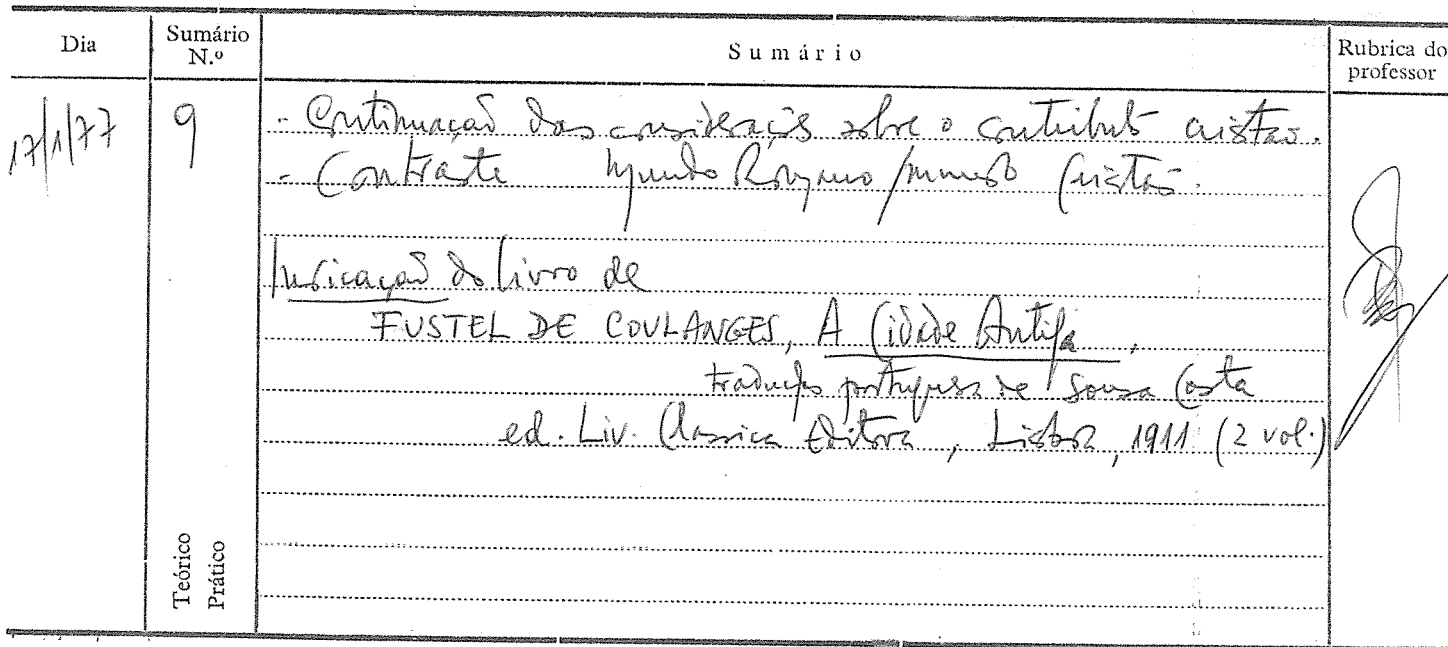 Dia
Sumário N.º
Sumário
Rubrica do professor
17/1/77
9
- Continuação das considerações sobre o contributo cristão.
- Contraste Mundo Romano/mundo Cristão.
Indicação do livro de
FUSTEL DE COULANGES, A Cidade Antiga,
tradução portuguesa de Sousa Costa
ed. Liv. Classica Editora, Lisboa, 1911 (2 vol.)
Teórico
Prático